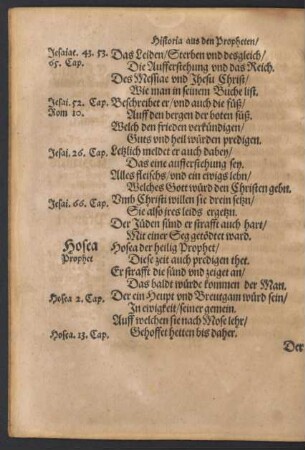 Historia aus den Propheten/
Jesaiæ. 43. 53. Das Leiden/Sterben vnd desgleich/
65. Cap. Die Aufferstehung vnd das Reich.
Des Messiae vnd Jhesu Christ/
Wie man in seinem Buche list.
Jesai. 52. Cap. Beschreibet er/vnd auch die füß/
Rom 10. Auff den bergen der boten süß.
Welch den frieden verkündigen/
Guts vnd heil würden predigen.
Jesai. 26. Cap. Letzlich meldet er auch dabey/
Das eine aufferstehung sey.
Alles fleischs/vnd ein ewigs lebn/
Welches Gott würd den Christen gebn.
Jesai. 66. Cap. Vmb Christi willen sie drein setzn/
Sie also jres leids ergetzn.
Der Jüden sünd er strafft auch hart/
Mit einer Seg getödtet ward.
Hosea Hosea der heilig Prophet/
Prophet Diese zeit auch predigen thet.
Er strafft die sünd vnd zeiget an/
Das baldt würde kommen der Man.
Hosea 2. Cap. Der ein Heupt vnd Breutgam würd sein/
In ewigkeit/seiner gemein.
Auff welchen sie nach Mose lehr/
Hosea. 13. Cap. Gehoffet hetten bis daher.
Der